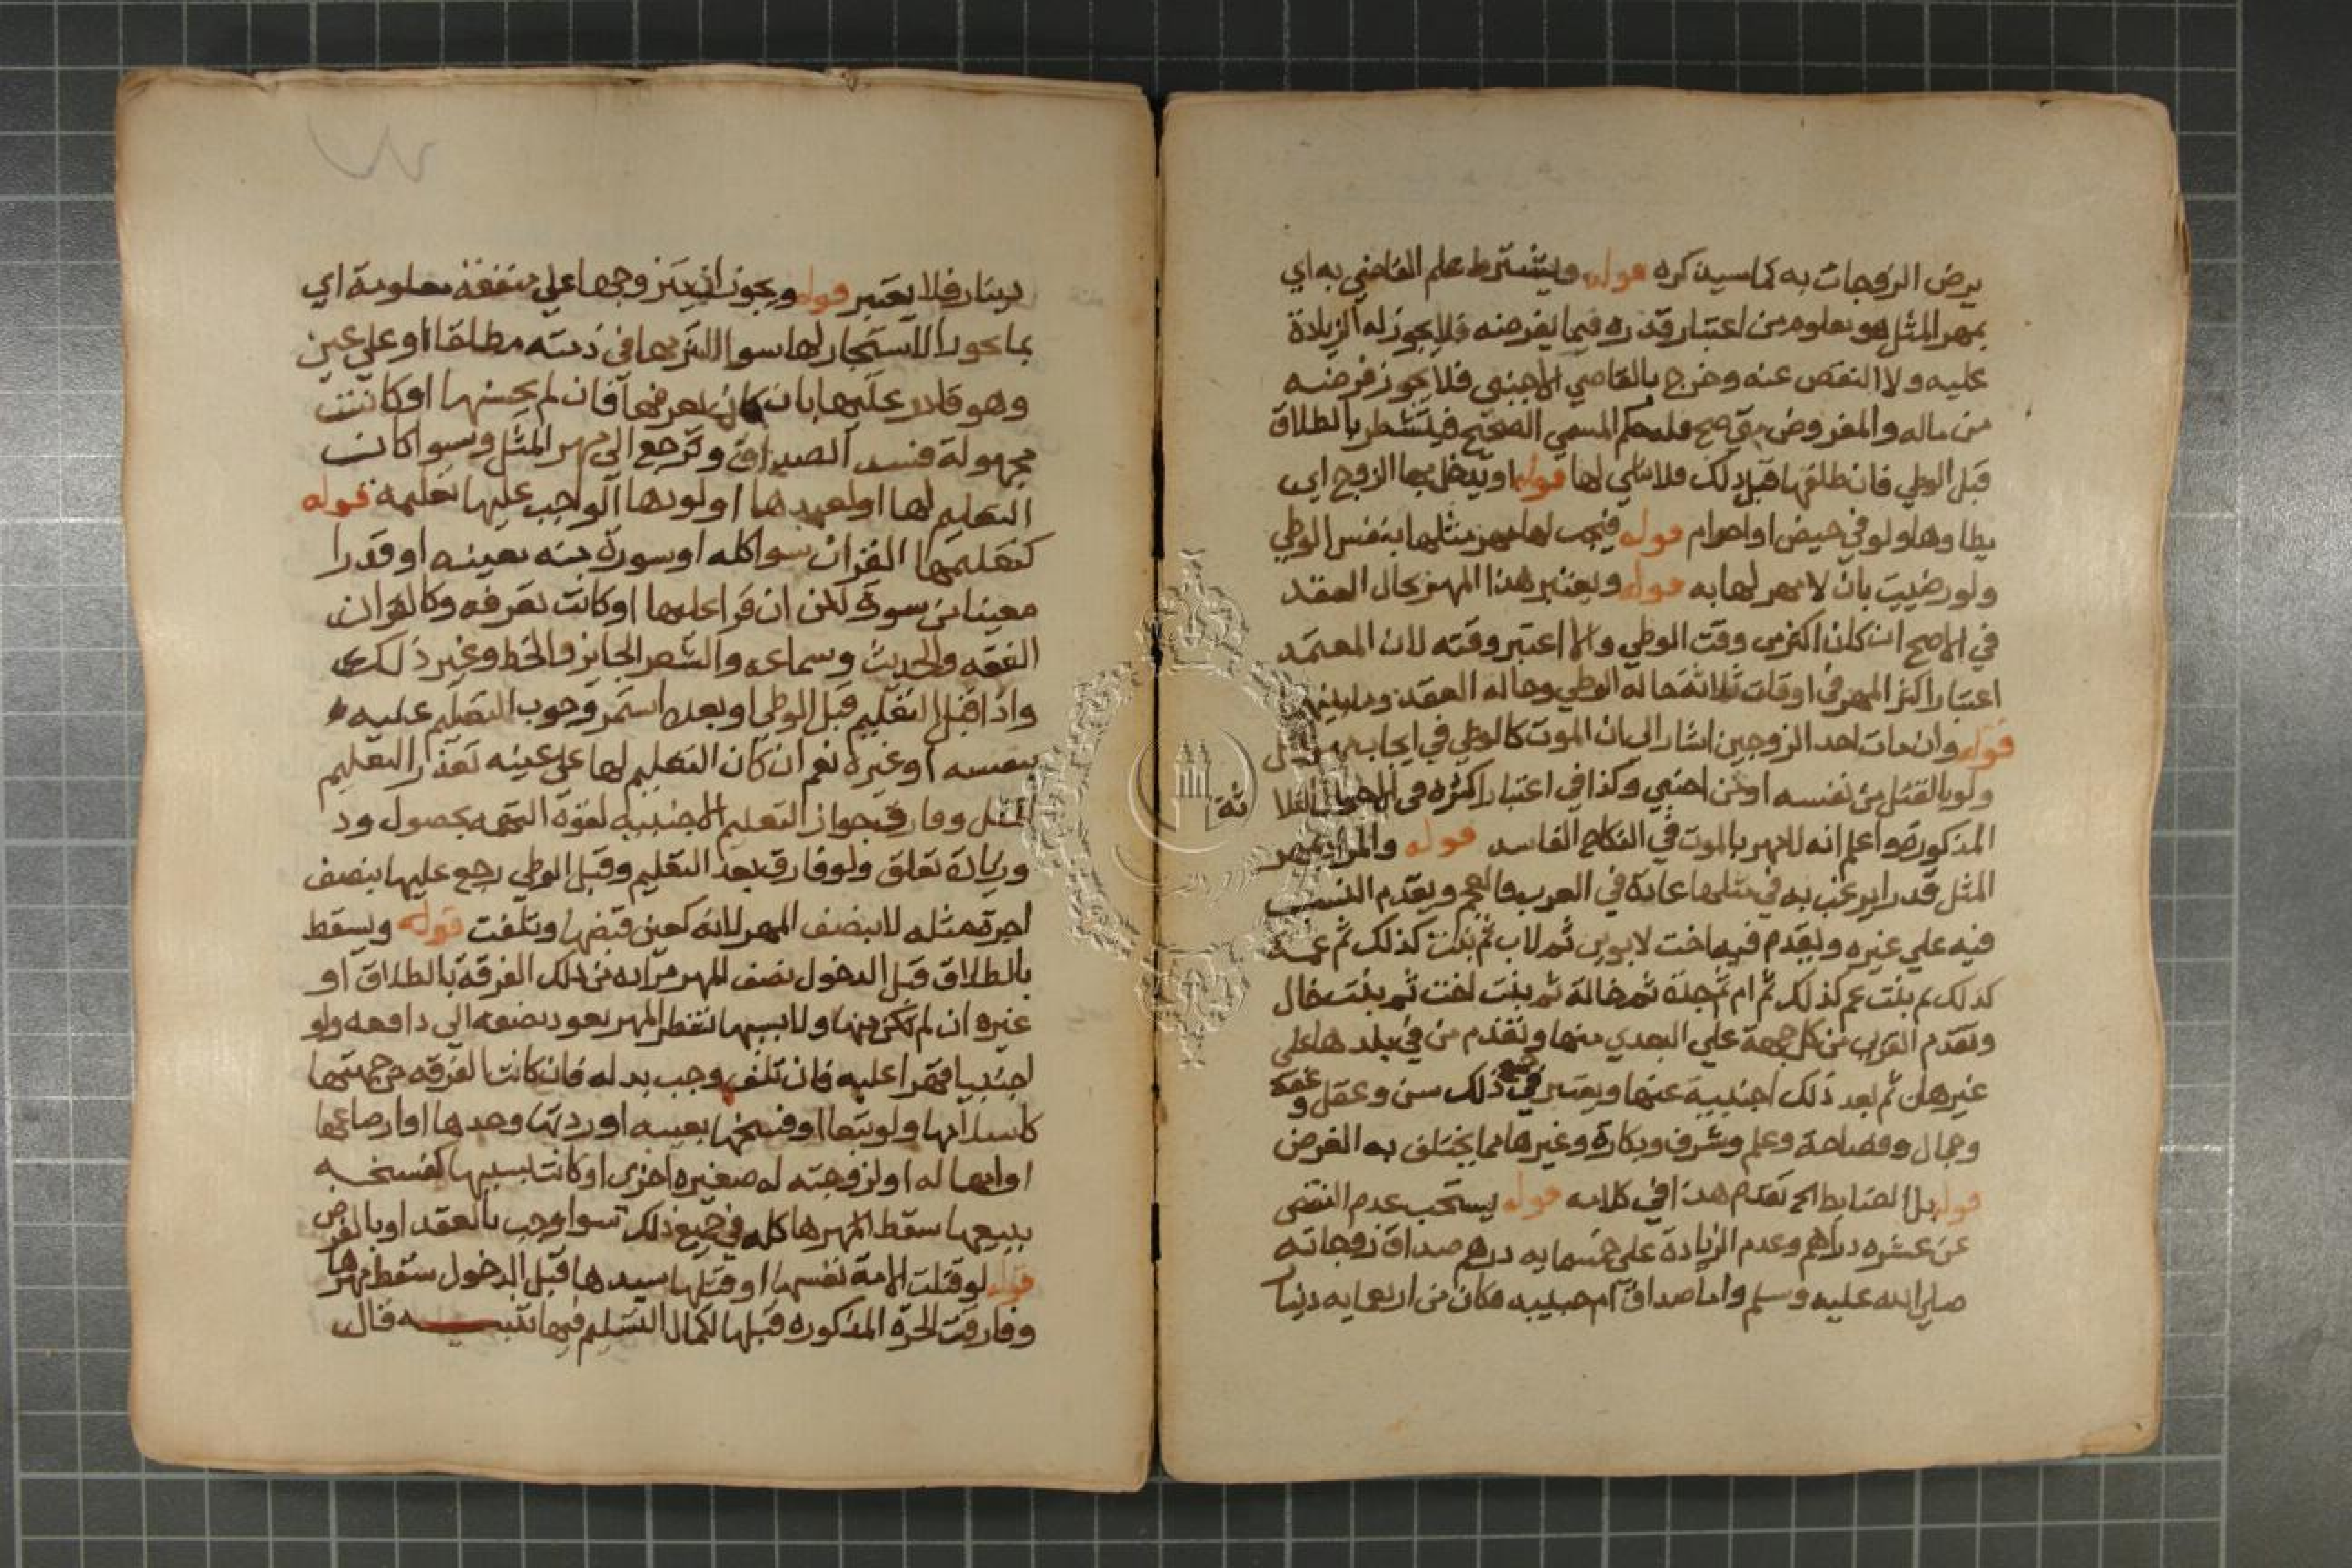 يرض الزوجات به كما سيذكره قوله ويشترط علم القاضي به اي
بمهر المثل هو معلوم من اعتبار قدره فيما يفرضه فلا يجوز له الزيادة
عليه ولا النقص عنه وخرج بالقاضي الاجنبي فلا يجوز فرضه
من ماله والمفروض صح فله حكم المسمي الصحيح فيتشطر بالطلاق
قبل الوطي فان طلقها قبل ذلك فلا شي لها قوله او يدخل بها الزوج اي
يطاوها ولو في حيض او احرام قوله فيجب لها مهر مثلها بنفس الوطي
ولو رضيت بان لا مهر لها به قوله ويعتبر هذا المهر بحال العقد
في الاصح ان كان اكثر من وقت الوطي والا اعتبر وقته لان المعتمد
اعتبار اكثر المهر في اوقات ثلاثة حالة الوطي وحالة العقد وما بينهما
قوله وان مات احد الزوجين اشار الي ان الموت كالوطي في ايجاب مهر المثل
ولو بالقتل من نفسه او من اجنبي وكذا في اعتبار اكثره في الاحوال الثلا ثة
المذكورة واعلم انه لا مهر بالموت في النكاح الفاسد قوله والمراد بمهر
المثل قدر ما يرغب به في مثلها عادة في العرب والعجم ويقدم النسب
فيه علي غيره ويقدم فيه اخت لابوين ثم لاب ثم بنت كذلك ثم عمة
كذلك ثم بنت عم كذلك ثم ام ثم جدة ثم خالة ثم بنت اخت ثم بنت خال
وتقدم القربي من كل جهة علي البعدي منها وتقدم من في بلدها علي
غيرها ثم بعد ذلك اجنبية عنها ويعتبر في جميع ذلك سن وعقل وعفة
وجمال وفصاحة وعلم وشرف وبكارة وغيرها مما يختلف به الغرض
قوله بل الضابط الخ تقدم هذا في كلامه قوله يستحب عدم النقص
عن عشره دراهم وعدم الزيادة علي خمسمايه درهم صداق زوجاته
صلي الله عليه وسلم واما صداق ام حبيبه فكان من اربعمايه دينار
دينار فلا يعتبر قوله ويجوز ان يتزوجها علي منفعة معلومة اي
بما يجوز الاستجار لها سوا التزمها في ذمته مطلقا او علي عين
وهو قادر عليها بان كان يعرفها فان لم يحسنها او كانت
مجهولة فسد الصداق وترجع الي مهر المثل وسوا كان
التعليم لها او لعبدها او لولدها الواجب عليها تعليمه قوله
كتعليمها القران سوا كله او سورة منه بعينه او قدرا
معينا من سورة لكن ان قرا عليها او كانت تعرفه وكالقران
الفقه والحديث وسماعه والشعر الجايز والخط وغير ذلك
واذا قبل التعليم قبل الوطي او بعده استمر وجوب التعليم عليه
بنفسه او غيره نعم ان كان التعليم لها علي عينه تعذر التعليم
المثل وفارق جواز التعليم الاجنبيه لقوة التهمه بحصول ود
وزيادة تعلق ولو فارق بعد التعليم وقبل الوطي رجع عليها بنصف
اجرة مثله لا بنصف المهر لانه كعين قبضها وتلفت قوله ويسقط
بالطلاق قبل الدخول نصف المهر مراده من ذلك الفرقة بالطلاق او
غيره ان لم تكن منها ولا بسببها فشطر المهر يعود نصفه الي دافعه ولو
اجنبيا قهرا عليه فان تلف وجب بدله فان كانت الفرقه من جهتها
كاسلامها ولو تبعا او فسخها بعيبه او ردتها وحدها او ارضاعها
او امها له او لزوجته له صغيره اخري او كانت بسببها كفسخه
بعيبها سقط المهر ها كله في جميع ذلك سوا وجب بالعقد او بالفرض
قوله لو قتلت الامة نفسها او قتلها سيدها قبل الدخول سقط مهرها
وفارقت الحرة المذكوره قبلها لكمال التسليم فيها تنبيه قال